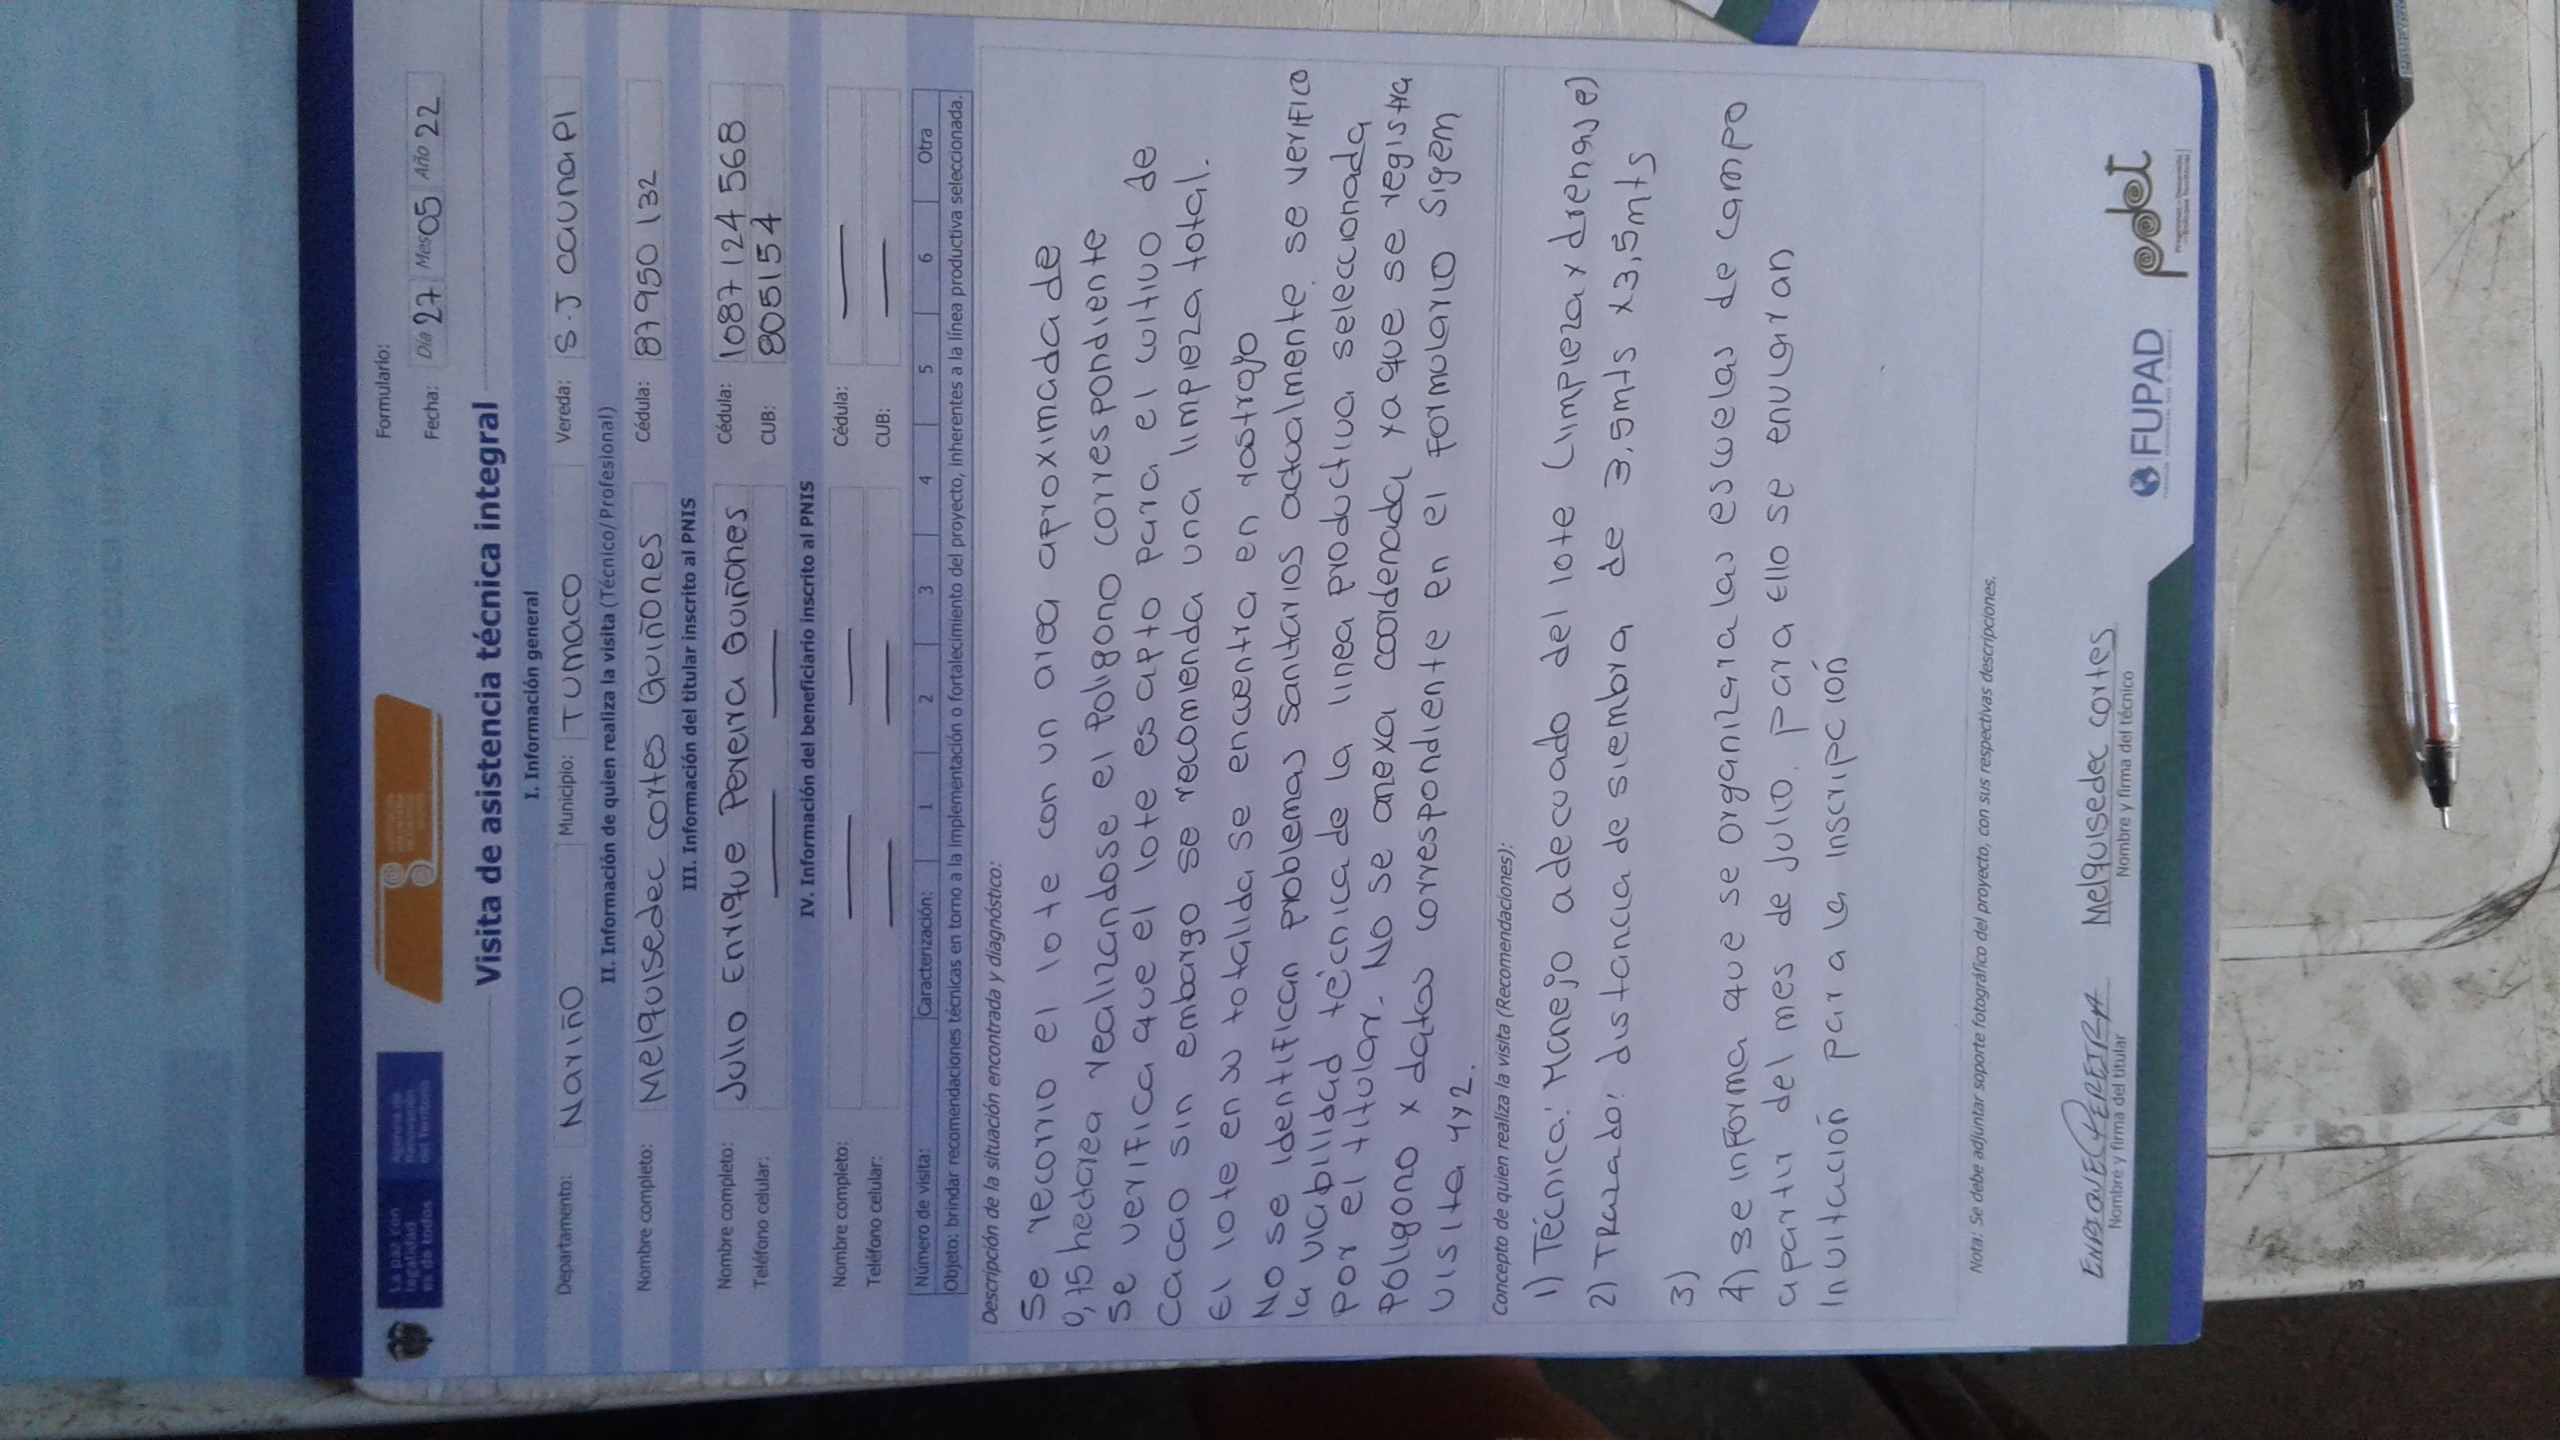 La paz con
legalidad
es de todos
Agencia de
Renovación
del Territorio
Formulario:
Fecha: Día 27 Mes 05 Año 22
Visita de asistencia técnica integral
I. Información general
Departamento: Nariño Municipio: Tumaco Vereda: S.J caunapi
II. Información de quien realiza la visita (Técnico/Profesional)
Nombre completo: Melquisedec cortes Quiñones Cédula: 87950132
III. Información del titular inscrito al PNIS
Nombre completo: Julio Enrique Pereira Quiñones Cédula: 1087124568
Teléfono celular: — — CUB: 805154
IV. Información del beneficiario inscrito al PNIS
Nombre completo: — — Cédula: —
Teléfono celular: — — CUB: —
Número de visita: Caracterización: 1 2 3 4 5 6 Otra
Objeto: brindar recomendaciones técnicas en torno a la implementación o fortalecimiento del proyecto, inherentes a la línea productiva seleccionada.
Descripción de la situación encontrada y diagnóstico:
Se recorrio el lote con un area aproximada de
0,75 hectarea realizandose el Poligono correspondiente
Se verifica que el lote es apto para el cultivo de
cacao sin embargo se recomienda una limpieza total.
El lote en su totalida se encuentra en rastrojo
No se identifican problemas sanitarios actualmente, se verifico
la viabilidad técnica de la linea productiva seleccionada
Por el titular. No se anexa coordenada ya que se registra
Poligono y datos correspondiente en el Formulario Sigem
visita 4y2.
Concepto de quien realiza la visita (Recomendaciones):
1) Técnica: Manejo adecuado del lote (limpieza y drenase)
2) Trazado: distancia de siembra de 3,5mts x3,5mts
3)
4) se informa que se organizara las escuelas de campo
apartir del mes de Julio, para Ello se envulgiran
Invitación para la inscripción
Nota: Se debe adjuntar soporte fotográfico del proyecto, con sus respectivas descripciones.
ENRIQUE PEREIRA Melquisedec cortes
Nombre y firma del titular Nombre y firma del técnico
FUPAD pdet